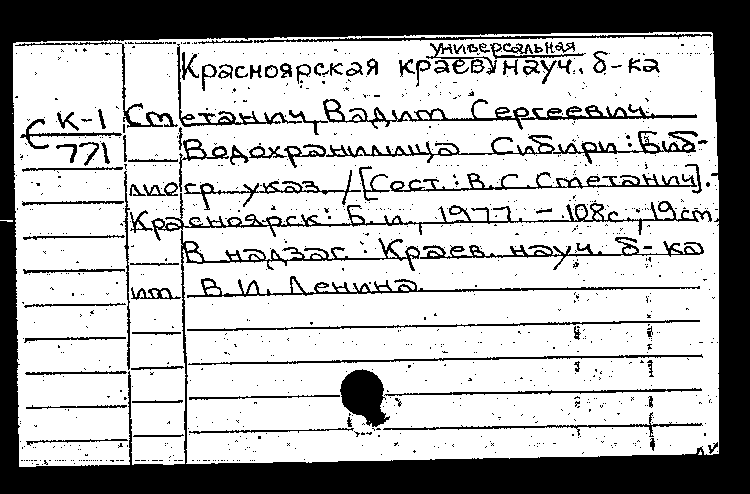 универсальная
Красноярская краев. науч. б-ка
Стетанич, Вадим Сергеевич.
С К-1
771
Водохранилища Сибири: Биб-
лиогр. указ. / [Сост.: В. С. Стетанич]. -
Красноярск: Б. и., 1977. - 108с.; 19 cm.
В надзаг.: Краев. науч. б-ка
им. В. И. Ленина.